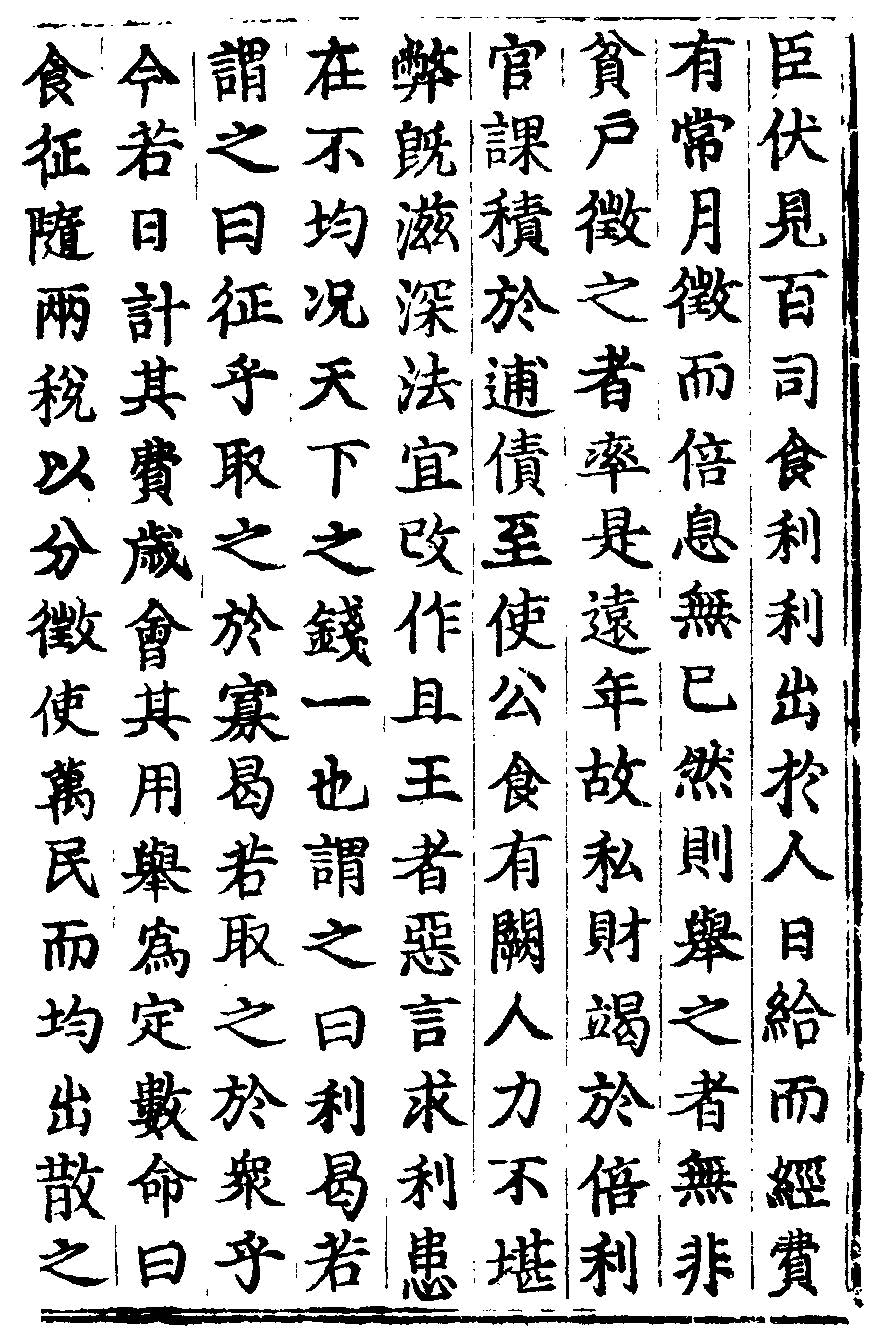 臣伏見百司食利利出於人日給而經費
有常月徵而倍息無已然則舉之者無非
貧戶徵之者率是遠年故私財竭於倍利
官課積於逋債至使公食有闕人力不堪
弊旣滋深法宜改作且王者惡言求利患
在不均况天下之錢一也謂之曰利曷若
謂之曰征乎取之於寡曷若取之於衆乎
今若日計其費歲會其用舉爲定數命曰
食征隨兩稅以分徵使萬民而均出散之